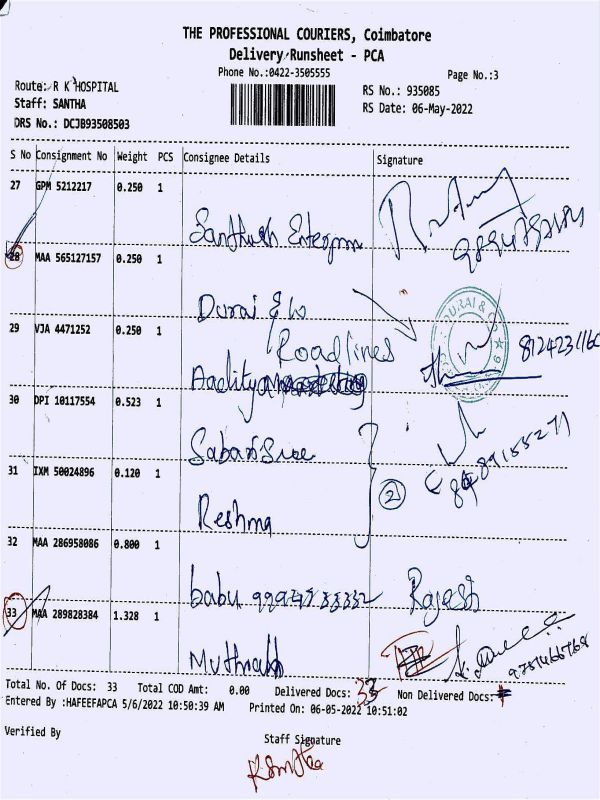 THE PROFESSIONAL COURIERS, Coimbatore
Delivery Runsheet - PCA
Phone No.:0422-3505555
Page No.:3
Route: R K HOSPITAL
RS No.: 935085
Staff: SANTHA
RS Date: 06-May-2022
DRS No.: DCJB93508503
S No Consignment No Weight PCS Consignee Details Signature
27 GPM 5212217 0.250 1
Santhosh
28 MAA 565127157 0.250 1
Durai & Co
29 VJA 4471252 0.250 1
Roadlines
Aaditya
30 DPI 10117554 0.523 1
31 IXM 50024896 0.120 1
2
Reshma
32 MAA 286958086 0.800 1
babu Rajesh
33 MAA 289828384 1.328 1
Total No. Of Docs: 33 Total COD Amt: 0.00 Delivered Docs: 33 Non Delivered Docs:
Entered By :HAFEEFAPCA 5/6/2022 10:50:39 AM Printed On: 06-05-2022 10:51:02
Verified By
Staff Signature